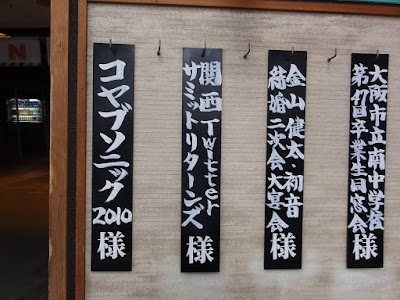 大阪市立南中学校
第47回卒業生同窓会
様
金山健太・初音
結婚二次会大宴会
様
関西Twitter
サミットリターンズ
様
コヤブソニック
2010
様
N